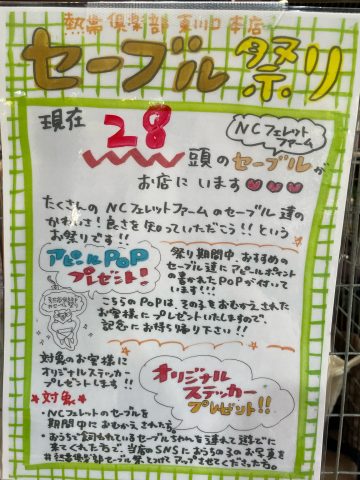 熱帯倶楽部 東川口本店
セーブル祭り
現在 28 頭のセーブルが
NCフェレットファーム
お店にいます
たくさんの NCフェレットファームのセーブル達の
かわいさ！良さを知っていただこう！！という
お祭りです！！
アピールPOP
プレゼント！
祭り期間中、おすすめの
セーブル達にアピールポイント
の書かれたPOPが付いて
います!!!
こちらのPOPは、その子をおむかえされた
お客様にプレゼントいたしますので、
記念にお持ち帰り下さい!!
対象のお客様に
オリジナルステッカー
プレゼントします!!
オリジナル
ステッカー
プレゼント!!
対象
・NCフェレットのセーブルを
期間中におむかえされた方。
・おうちで飼われているセーブルちゃんを連れて遊びに
来てくれた方で、当店のSNSにおうちの子のお写真を
#熱帯倶楽部セーブル祭とつけてアップさせてくださった方。